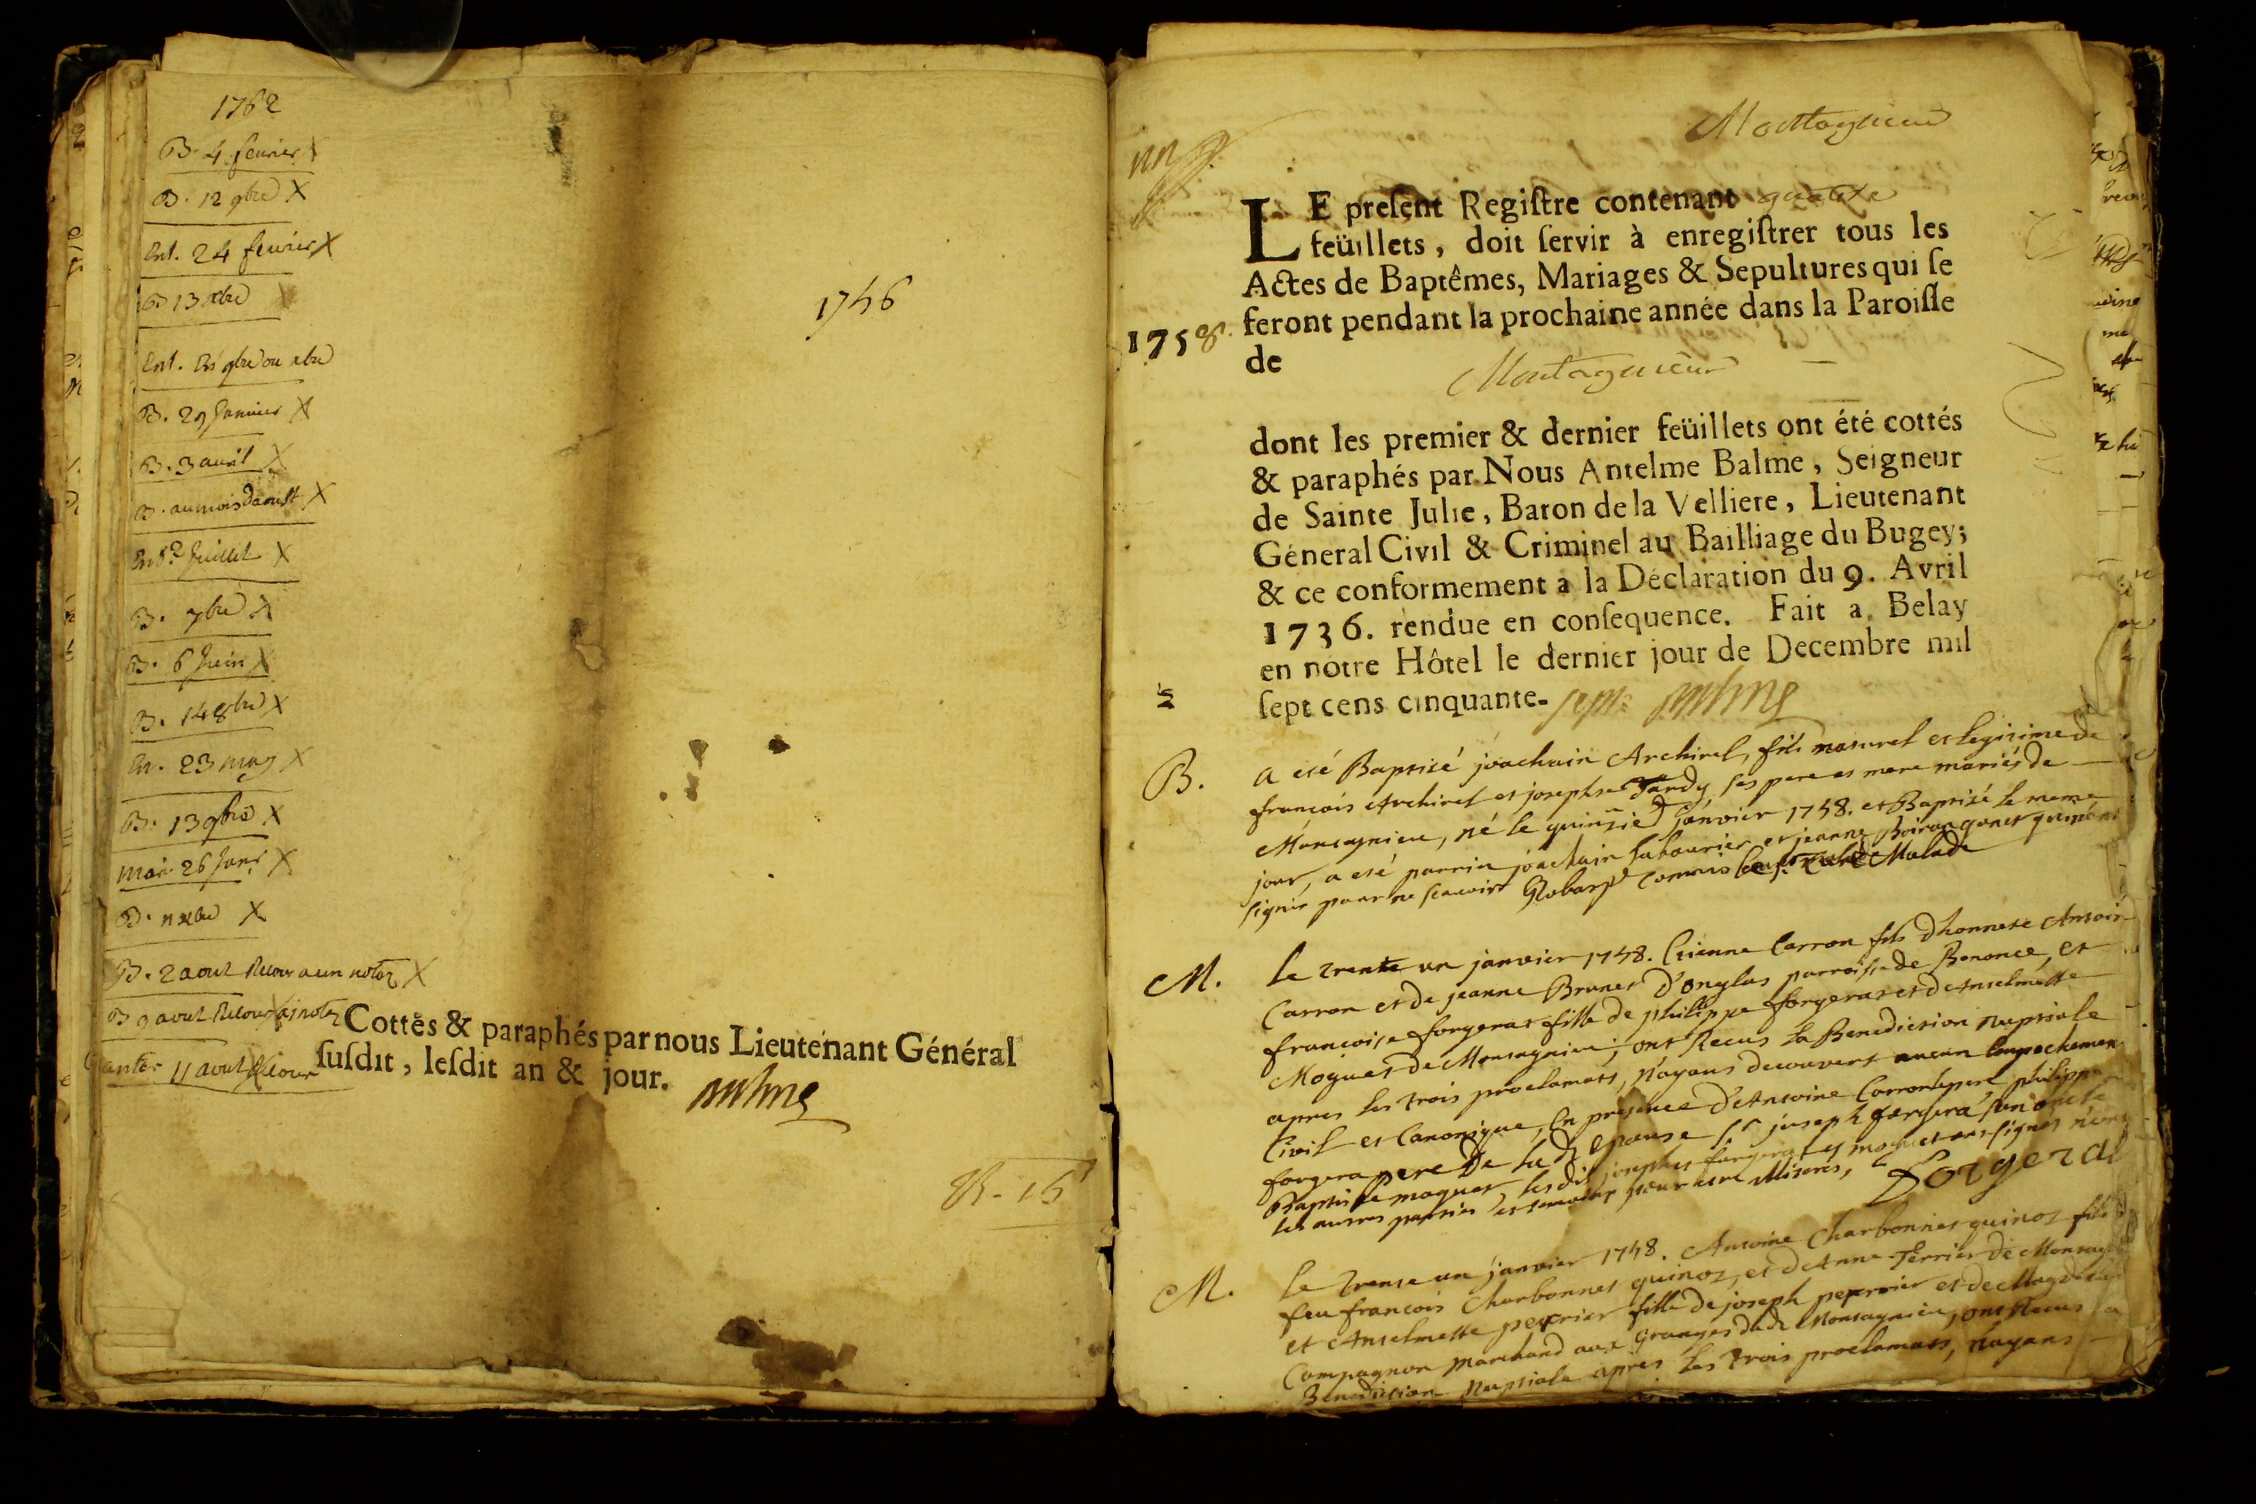 1762
B. 4 fevrier X
B. 12 9bre X
Ent. 24 fevrier X
B 13 xbre X
Ent. En 9bre ou xbre
B. 29 Janvier X
B. 3 avril X
B. au mois Daoust X
Ent 2 Juillet X
B. 7bre X
B. 6 Juin X
B. 14 8bre X
En. 23 may X
B. 13 9bre X
Mar. 26 Janr X
B. 11 xbre X
B. 2 aout Retour a un notez X
B 9 aout Retour
11 aout Retour
1756
Cottés & paraphés par nous Lieutenant Général
ſuſdit, leſdit an & jour.
Montagnieu
LE preſent Regiſtre contenant quatre
feüillets, doit ſervir à enregiſtrer tous les
Actes de Baptêmes, Mariages & Sepultures qui ſe
1758. feront pendant la prochaine année dans la Paroiſſe
de
Montagnieux
dont les premier & dernier feüillets ont été cottés
& paraphés par Nous Antelme Balme, Seigneur
de Sainte Julie, Baron de la Velliere, Lieutenant
Géneral Civil & Criminel au Bailliage du Bugey;
& ce conformement a la Déclaration du 9. Avril
1736. rendue en conſequence. Fait a Belay
en nótre Hôtel le dernier jour de Decembre mil
ſept cens cinquante- sept
B. a eté Baptisé joachain Archirel, fils naturel et legitime de
francois Archirel et josephte Tardy ses pere et mere mariés de
Montagnieu, né le quinzie Janvier 1758. et Baptisé le meme
jour, a eté parrin joachain et jeanne
signer pour ne scavoir Commis Malade
M. le trente un janvier 1758. Etienne Carron fils dhonnete Antoine
Carron et de jeanne Brunet D'onglas parroisse de Benonce, et
francoise forgerat fille de philippe forgerat et de Anselmette
Moguet de Montagnieu, ont Recus la Benediction nuptiale
apres les trois proclamats, n'ayans decouvert aucun Empechement
Civil et Canonique, En presence d'Antoine Carron pere philippe
forgera pere De lad epouse Sr joseph forgera son oncle
Baptiste moguet, lesdit joseph forgera et moguet ont signes non
les autres parties et temoins pour etre Illiterés,
Forgera
M. le trente un janvier 1758. Antoine Charbonnet quinoz fils
feu francois Charbonnet quinoz, et d'Anne Perrier de Montagnieu
et Anselmette perrier fille de joseph perrier et de Magdelaine
Compagnon marchand aux Granges dud Montagnieu, ont Recus la
Benediction Nuptiale apres les trois proclamats, n'ayans